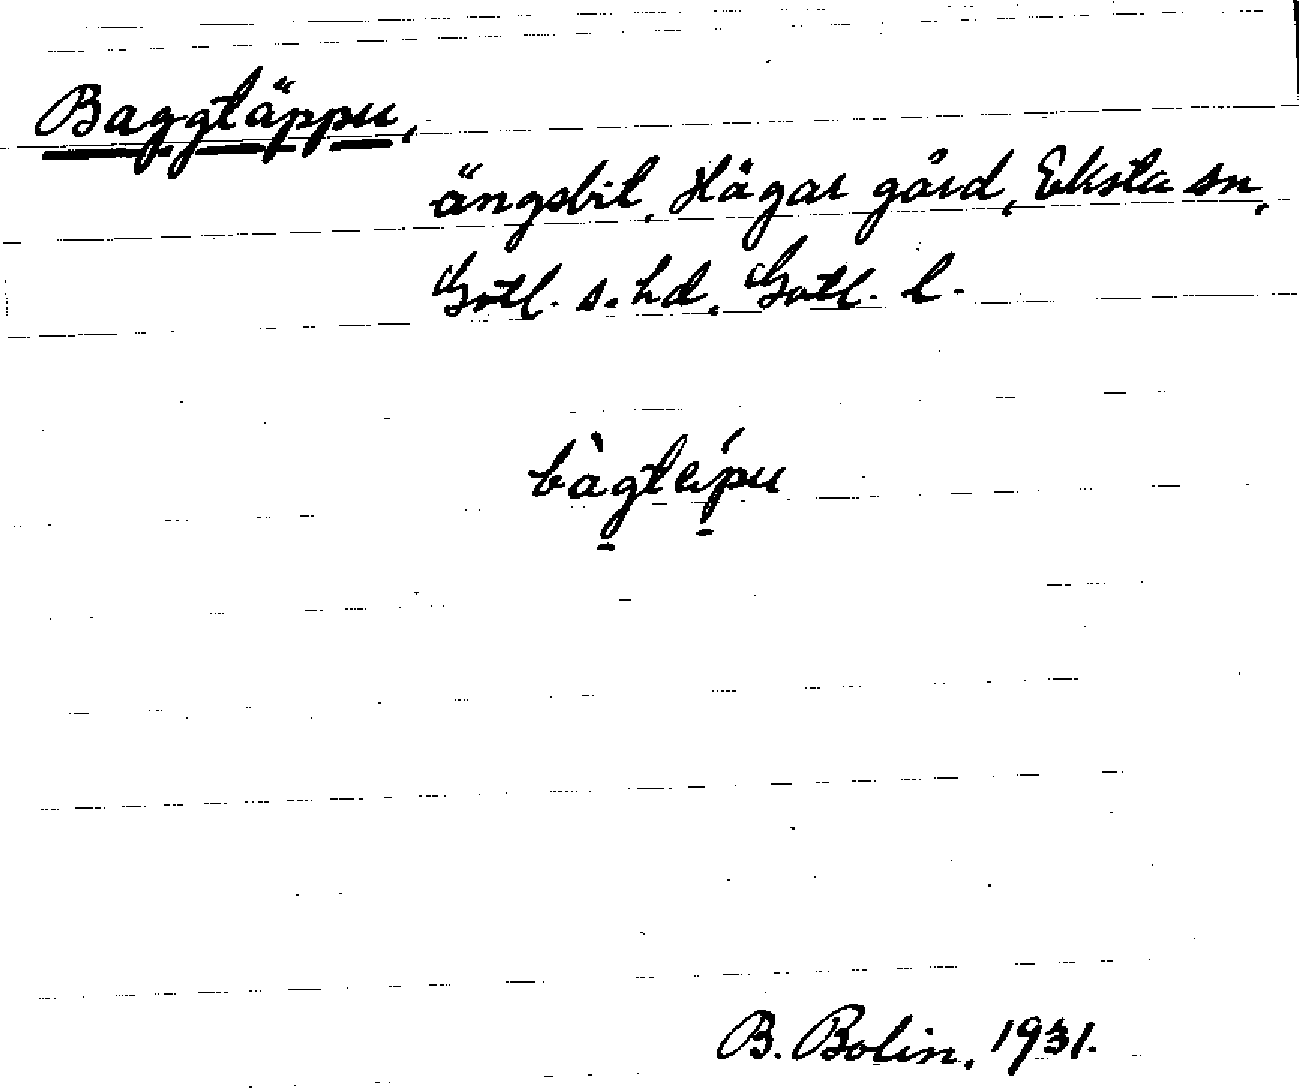 Baggtäppu,
ängsbit, Hägar gård, Eksta sn,
Gotl. s. hd, Gotl. l.
bàgtǽpu
B. Bolin, 1931.